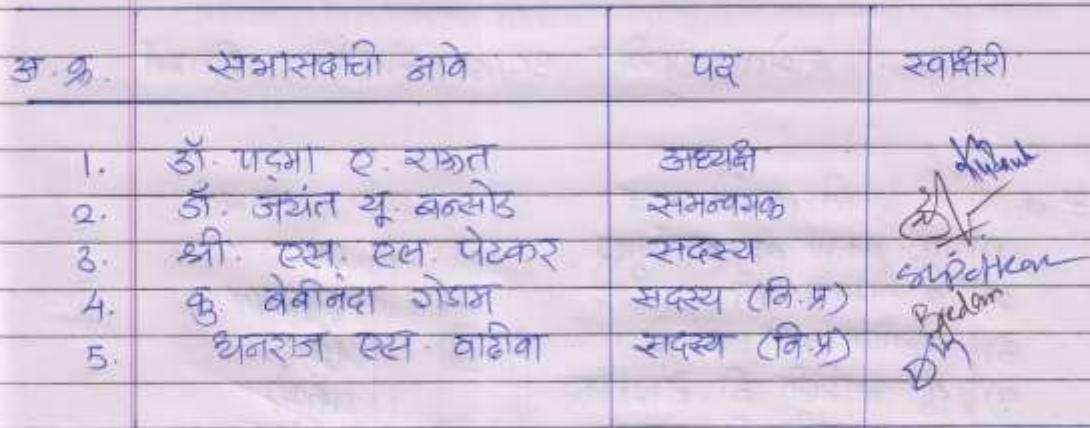 अ. क्र. सभासदांची नावे पद स्वाक्षरी
1. डॉ. पद्मा ए. राऊत अध्यक्ष
2. डॉ. जयंत यू. बन्सोड समन्वयक
3. श्री. एस. एल. पेटकर सदस्य
4. कु. बेबीनंदा गेडाम सदस्य (वि.प्र)
5. धनराज एस. वाढीवा सदस्य (वि.प्र)